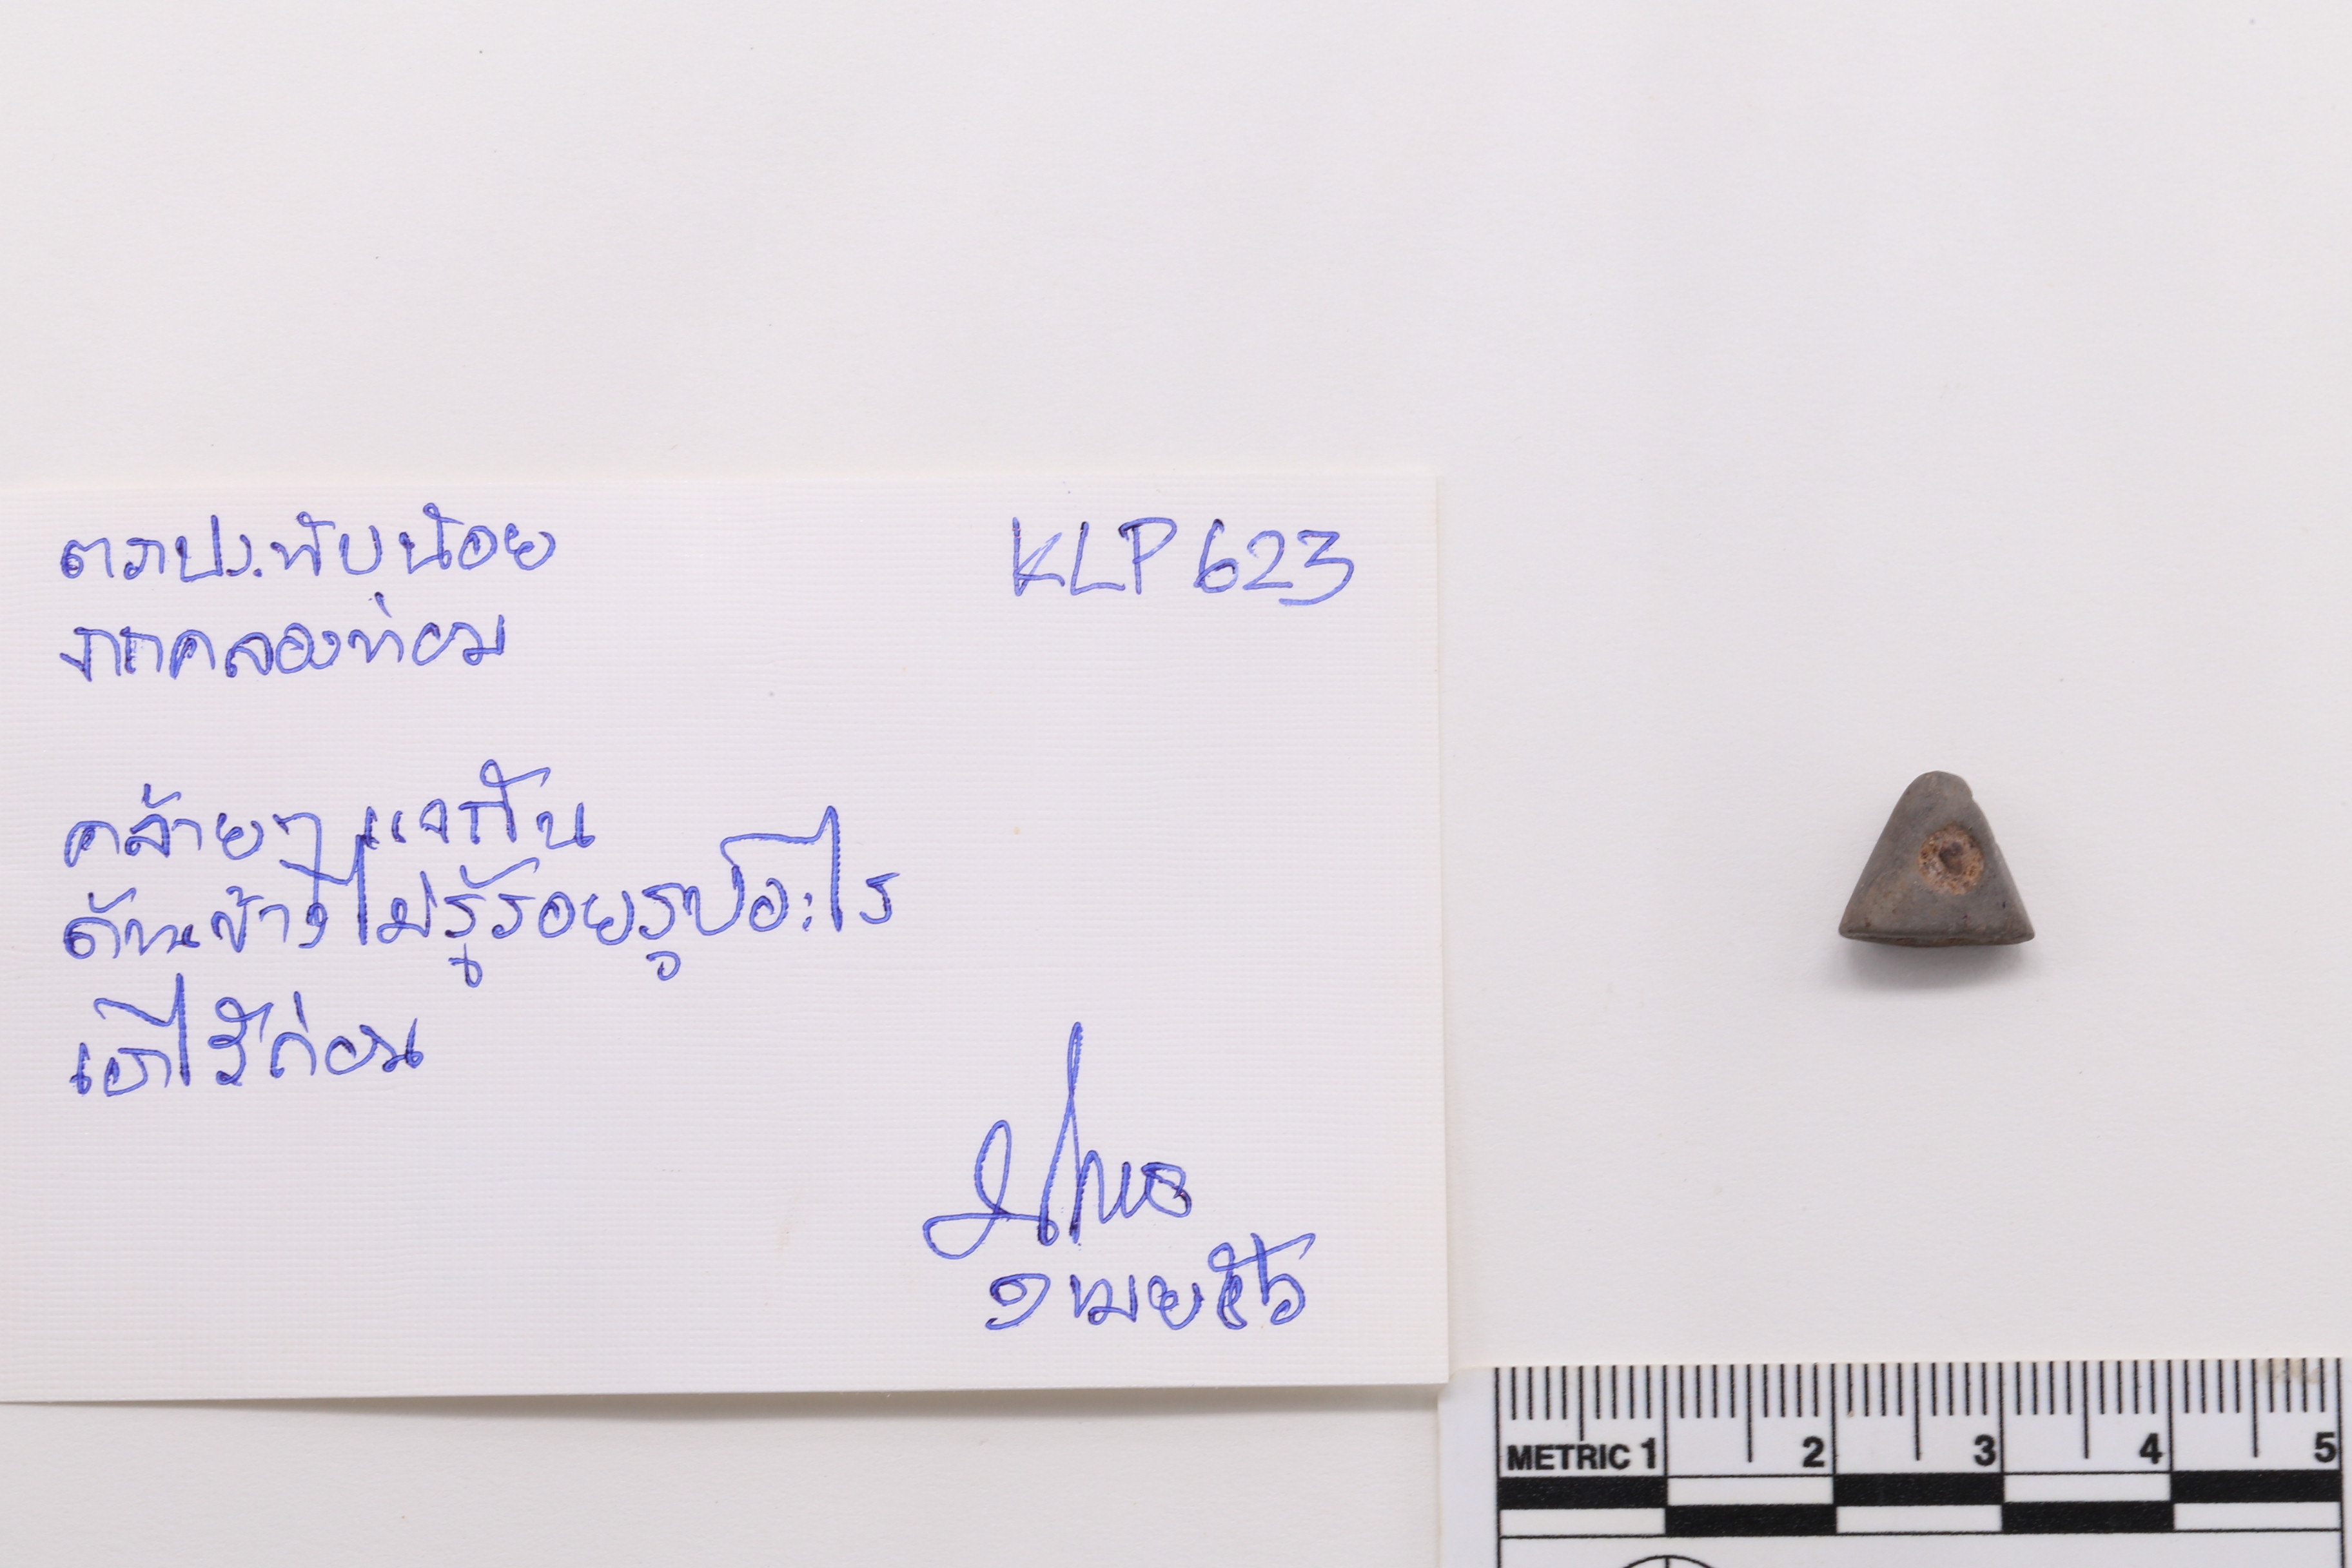 ตราประทับน้อย
KLP 623
จากคลองท่อม
คล้ายๆ แจกัน
ด้านข้างไม่รู้รอยรูปอะไร
เอาไว้ก่อน
๑ เมย ๕๖
METRIC 1 2 3 4 5